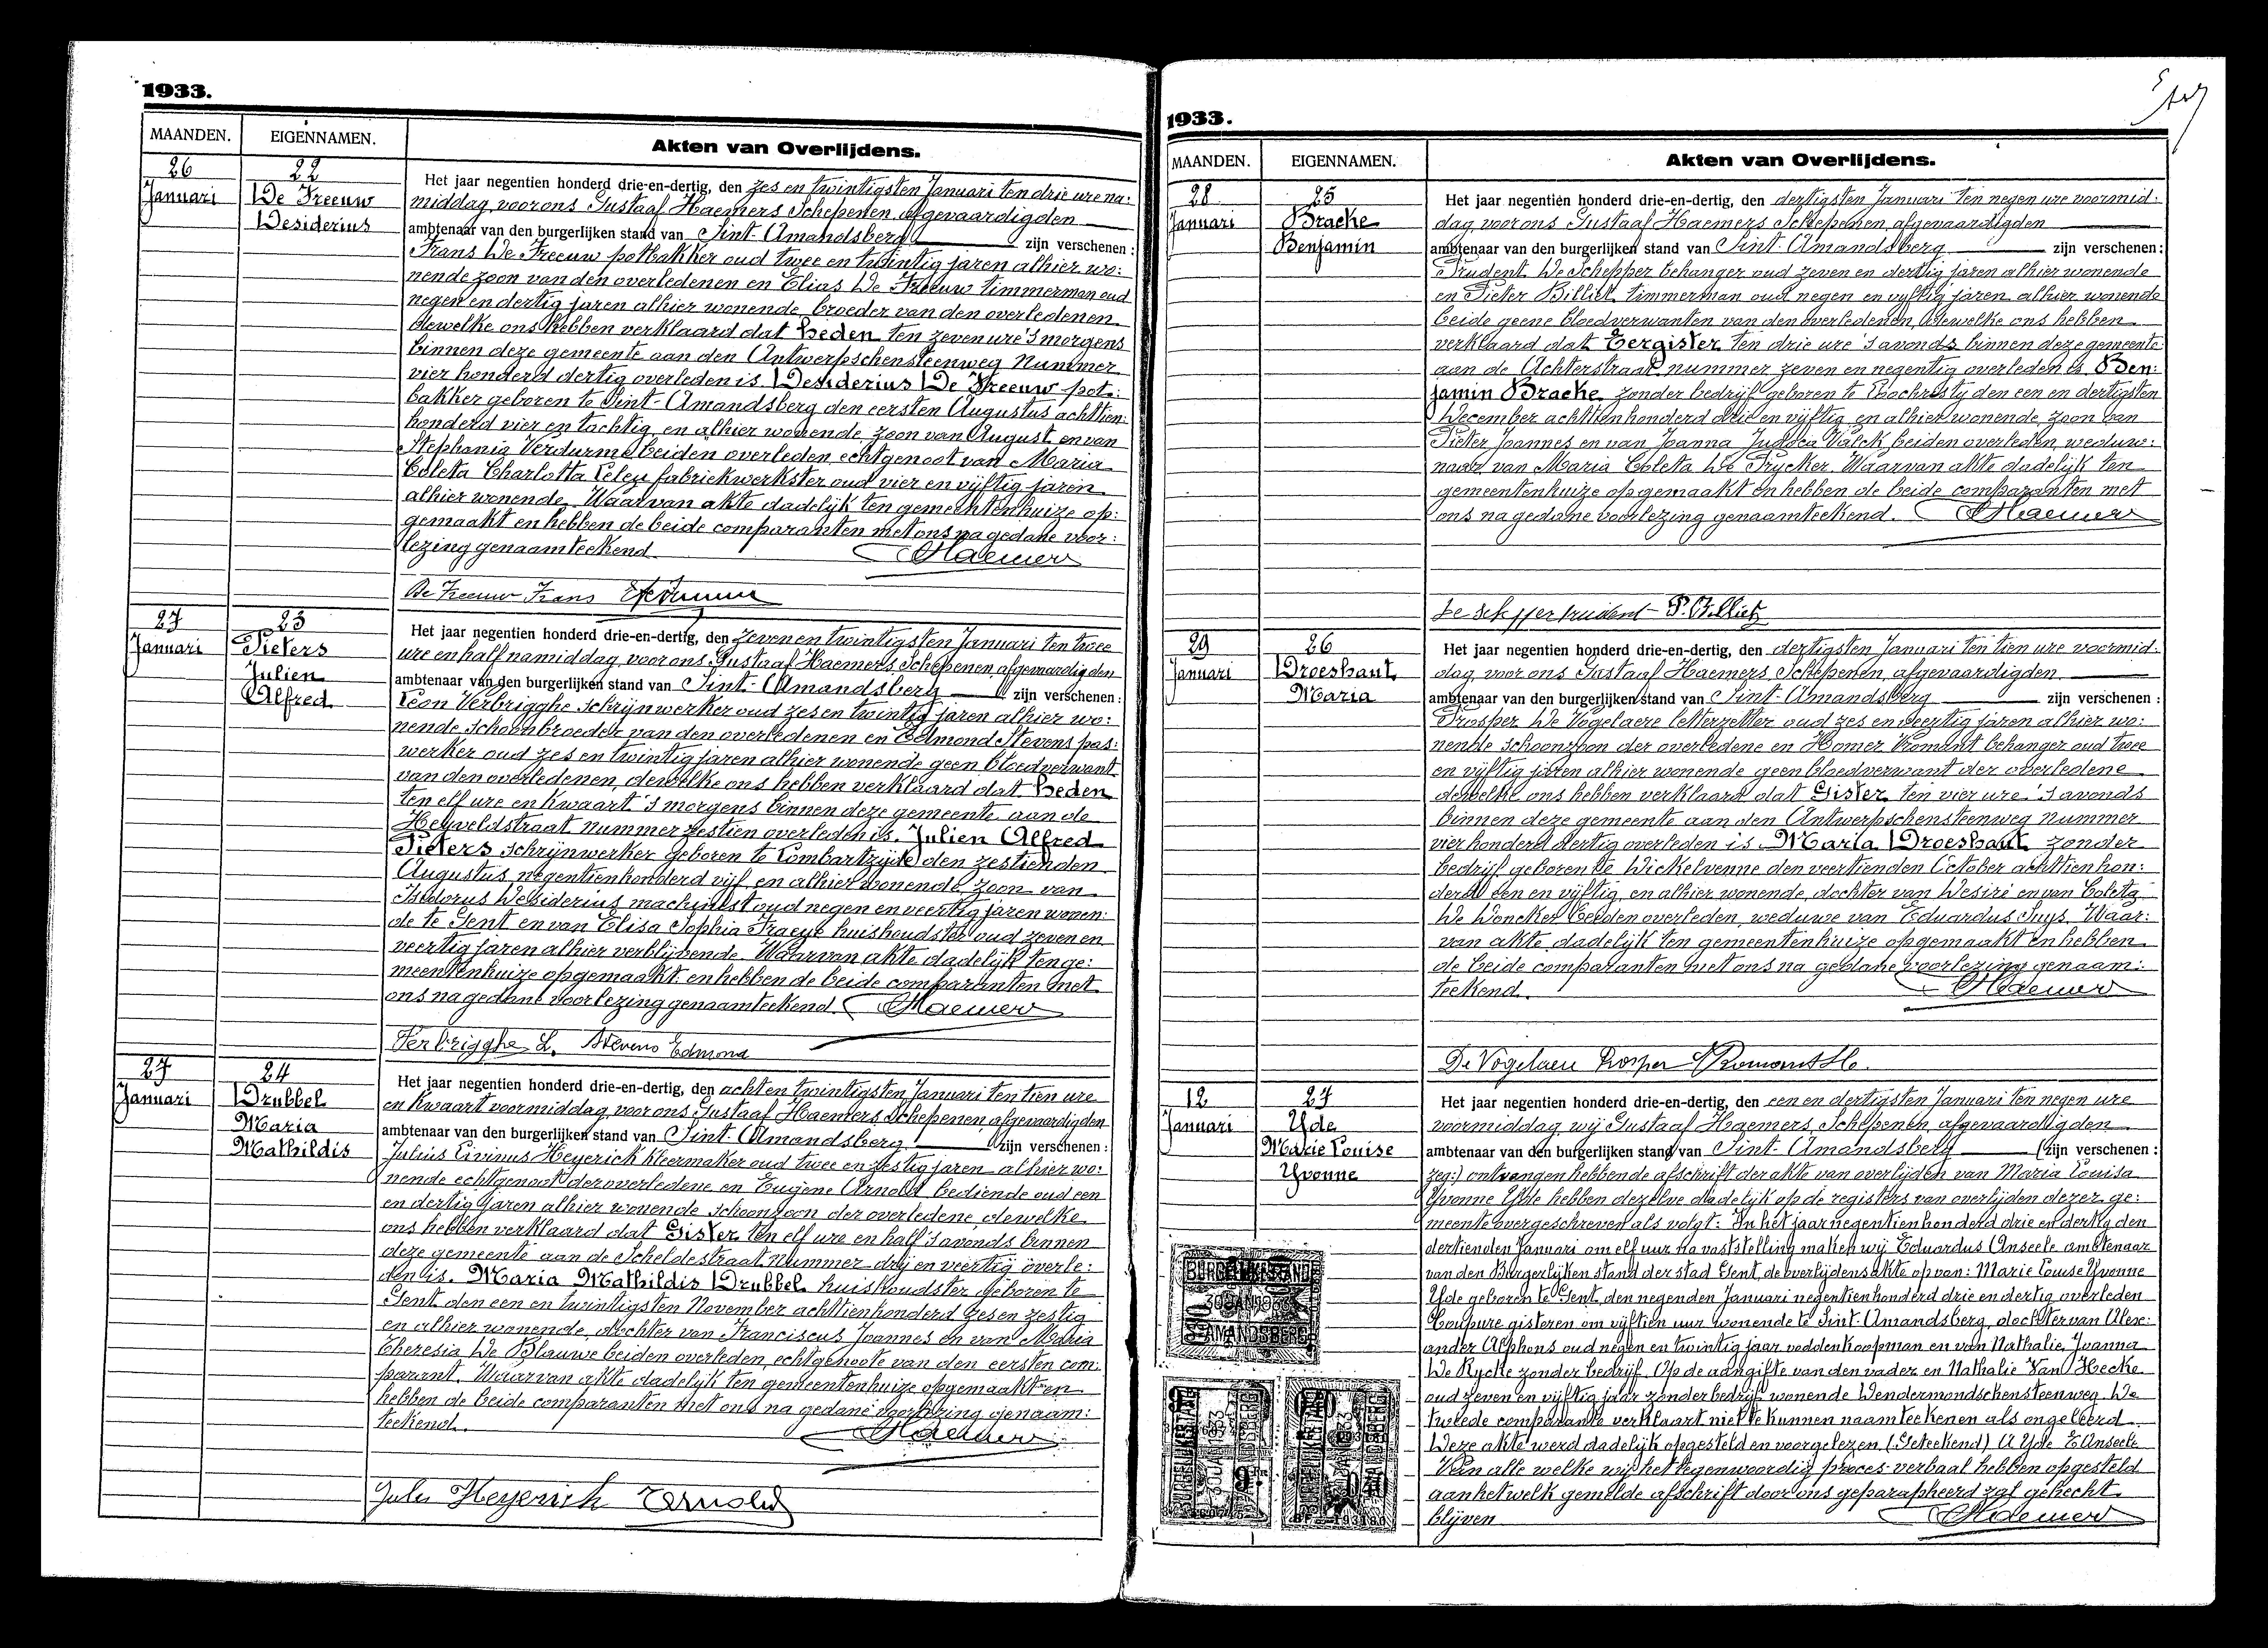 1933.
MAANDEN. EIGENNAMEN. Akten van Overlijdens.
26 22
Januari De Freeuw
Desiderius
Het jaar negentien honderd drie-en-dertig, den zes en twintigsten Januari ten drie ure na:
middag, voor ons Gustaaf Haemers Schepenen, afgevaardigden
ambtenaar van den burgerlijken stand van Sint-Amandsberg zijn verschenen:
Frans De Freeuw potbakker oud twee en twintig jaren alhier wo:
nende zoon van den overledenen en Elias De Freeuw timmerman oud
negen en dertig jaren alhier wonende, broeder van den overledenen
dewelke ons hebben verklaard dat heden ten zeven ure 's morgens
binnen deze gemeente aan den Antwerpschensteenweg nummer
vier honderd dertig overleden is Desiderius De Freeuw pot:
bakker geboren te Sint-Amandsberg den eersten Augustus achttien:
honderd vier en tachtig, en alhier wonende, zoon van August en van
Stephania Verdurme beiden overleden, echtgenoot van Maria
Coleta Charlotta Leley fabriekwerkster oud vier en vijftig jaren
alhier wonende. Waarvan akte dadelijk ten gemeentenhuize op:
gemaakt en hebben de beide comparanten met ons na gedane voor:
lezing genaamteekend. GHaemers
De Freeuw Frans
27 23
Januari Pieters
Julien
Alfred
Het jaar negentien honderd drie-en-dertig, den zeven en twintigsten Januari ten twee
ure en half namiddag, voor ons Gustaaf Haemers Schepenen, afgevaardigden
ambtenaar van den burgerlijken stand van Sint-Amandsberg zijn verschenen:
Leon Verbrigghe schrijnwerker oud zes en twintig jaren alhier wo:
nende schoonbroeder van den overledenen en Edmond Stevens pas:
werker oud zes en twintig jaren alhier wonende geen bloedverwant
van den overledenen, dewelke ons hebben verklaard dat heden
ten elf ure en kwaart 's morgens binnen deze gemeente aan de
Heyveldstraat nummer zestien overleden is Julien Alfred
Pieters schrijnwerker geboren te Lombartzijde den zestienden
Augustus negentienhonderd vijf en alhier wonende, zoon van
Isidorus Desiderius machinist oud negen en veertig jaren wonen:
de te Gent en van Elisa Sophia Traeye huishoudster oud zeven en
veertig jaren alhier verblijvende. Waarvan akte dadelijk ten ge:
meentenhuize opgemaakt en hebben de beide comparanten met
ons na gedane voorlezing genaamteekend. GHaemers
Verbrigghe L. Stevens Edmond
27 24
Januari Drubbel
Maria
Mathildis
Het jaar negentien honderd drie-en-dertig, den acht en twintigsten Januari ten tien ure
en kwaart voormiddag, voor ons Gustaaf Haemers Schepenen, afgevaardigden
ambtenaar van den burgerlijken stand van Sint-Amandsberg zijn verschenen:
Julius Livinus Heyerick kleermaker oud twee en zestig jaren alhier wo:
nende echtgenoot der overledene en Eugene Arnold bediende oud een
en dertig jaren alhier wonende schoonzoon der overledene, dewelke
ons hebben verklaard dat Gister ten elf ure en half 's avonds binnen
deze gemeente aan de Scheldestraat nummer drij en veertig overle:
den is Maria Mathildis Drubbel huishoudster geboren te
Gent den een en twintigsten November achttienhonderd zes en zestig
en alhier wonende, dochter van Franciscus Joannes en van Maria
Theresia De Blauwe beiden overleden, echtgenoote van den eersten com:
parant. Waarvan akte dadelijk ten gemeentenhuize opgemaakt en
hebben de beide comparanten met ons na gedane voorlezing genaam:
teekend. GHaemers
Jules Heyerick EArnold
1933.
MAANDEN. EIGENNAMEN. Akten van Overlijdens.
28 25
Januari Bracke
Benjamin
Het jaar negentien honderd drie-en-dertig, den dertigsten Januari ten negen ure voormid:
dag, voor ons Gustaaf Haemers Schepenen, afgevaardigden
ambtenaar van den burgerlijken stand van Sint-Amandsberg zijn verschenen:
Prudent De Schepper behanger oud zeven en dertig jaren alhier wonende
en Pieter Billiet timmerman oud negen en vijftig jaren alhier wonende
beide geene bloedverwanten van den overledenen, dewelke ons hebben
verklaard dat Eergister ten drie ure 's avonds binnen deze gemeente
aan de Achterstraat nummer zeven en negentig overleden is Ben:
jamin Bracke zonder bedrijf geboren te Lochristy den een en dertigsten
December achttienhonderd drie en vijftig en alhier wonende, zoon van
Pieter Joannes en van Joanna Judoca Valck beiden overleden, weduw:
naar van Maria Coleta De Prycker. Waarvan akte dadelijk ten
gemeentenhuize opgemaakt en hebben de beide comparanten met
ons na gedane voorlezing genaamteekend. GHaemers
De Schepper Prudent P. Billiet
29 26
Januari Droeshaut
Maria
Het jaar negentien honderd drie-en-dertig, den dertigsten Januari ten tien ure voormid:
dag, voor ons Gustaaf Haemers Schepenen, afgevaardigden
ambtenaar van den burgerlijken stand van Sint-Amandsberg zijn verschenen:
Prosper De Vogelaere letterzetter oud zes en veertig jaren alhier wo:
nende schoonzoon der overledene en Homer Romont behanger oud twee
en vijftig jaren alhier wonende geen bloedverwant der overledene
dewelke ons hebben verklaard dat Gister ten vier ure 's avonds
binnen deze gemeente aan den Antwerpschensteenweg nummer
vier honderd dertig overleden is Maria Droeshaut zonder
bedrijf geboren te Wickelvenne den veertienden October achttienhon:
derd een en vijftig, en alhier wonende, dochter van Desiré en van Coleta
De Doncker beiden overleden, weduwe van Eduardus Suys. Waar:
van akte dadelijk ten gemeentenhuize opgemaakt en hebben
de beide comparanten met ons na gedane voorlezing genaam:
teekend. GHaemers
De Vogelaere Prosper Romont Ho.
12 27
Januari Yde
Marie Louise
Yvonne
Het jaar negentien honderd drie-en-dertig, den een en dertigsten Januari ten negen ure
voormiddag, wij Gustaaf Haemers Schepenen, afgevaardigden
ambtenaar van den burgerlijken stand van Sint-Amandsberg (zijn verschenen:
zeg:) ontvangen hebbende afschrift der akte van overlijden van Maria Louisa
Yvonne Yde hebben dezelve dadelijk op de registers van overlijden dezer ge:
meente overgeschreven als volgt: In het jaar negentienhonderd drie en dertig den
dertienden Januari om elf uur na vaststelling maken wij Eduardus Anseele ambtenaar
van den Burgerlijken stand der stad Gent, de overlijdensakte op van: Marie Louise Yvonne
Yde geboren te Gent, den negenden Januari negentienhonderd drie en dertig overleden
Coupure gisteren om vijftien uur wonende te Sint-Amandsberg, dochter van Alex:
ander Alphons oud negen en twintig jaar voddenkoopman en van Nathalie Joanna
De Rycke zonder bedrijf. Op de aangifte van den vader en Nathalie Van Hecke
oud zeven en vijftig jaar zonder bedrijf wonende Dendermondschensteenweg. De
tweede comparante verklaart niet te kunnen naamteekenen als ongeleerd.
Deze akte werd dadelijk opgesteld en voorgelezen (Geteekend) A Yde E Anseele
Van alle welke wij het tegenwoordig proces-verbaal hebben opgesteld
aan hetwelk gemelde afschrift door ons geparapheerd zal gehecht
blijven GHaemers